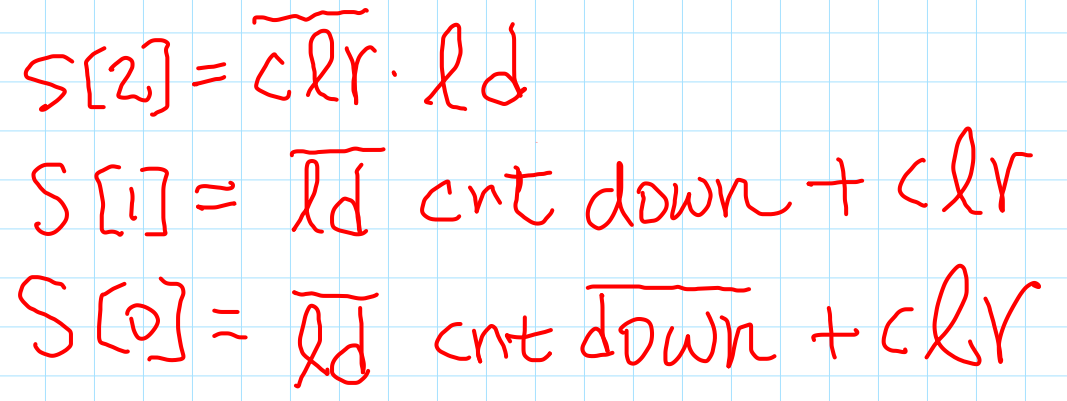 S[2] = \overline{clr} · ld
S[1] = \overline{ld} cnt down + clr
S[0] = \overline{ld} cnt \overline{down} + clr